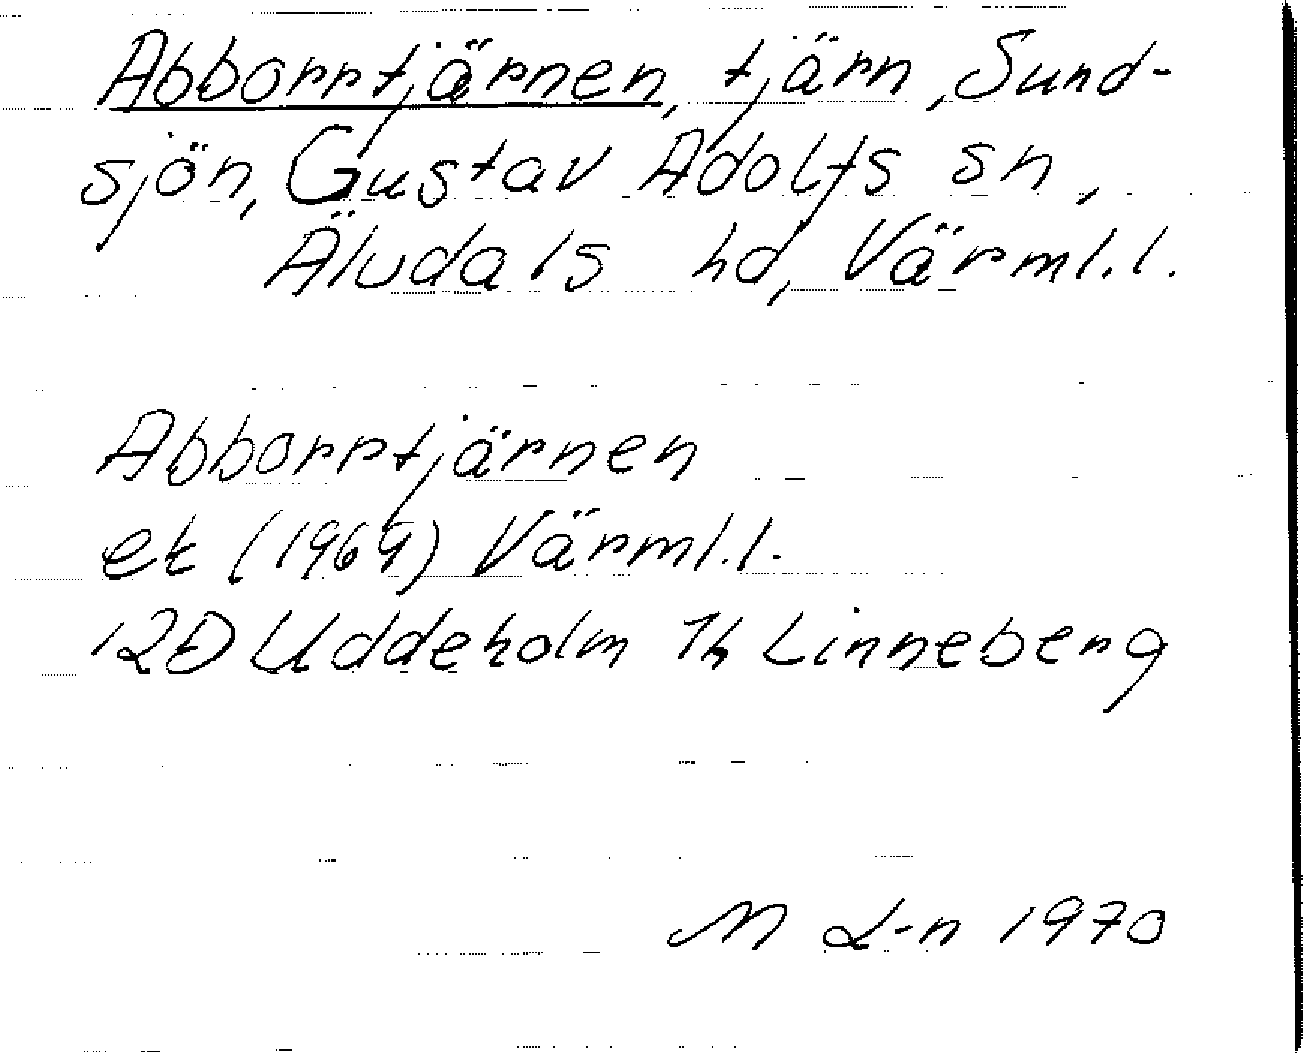 Abborrtjärnen, tjärn, Sund-
sjön, Gustav Adolfs sn,
Älvdals hd, Värml.l.
Abborrtjärnen
ek (1969) Värml.l.
12D Uddeholm Th Linneberg
M L-n 1970